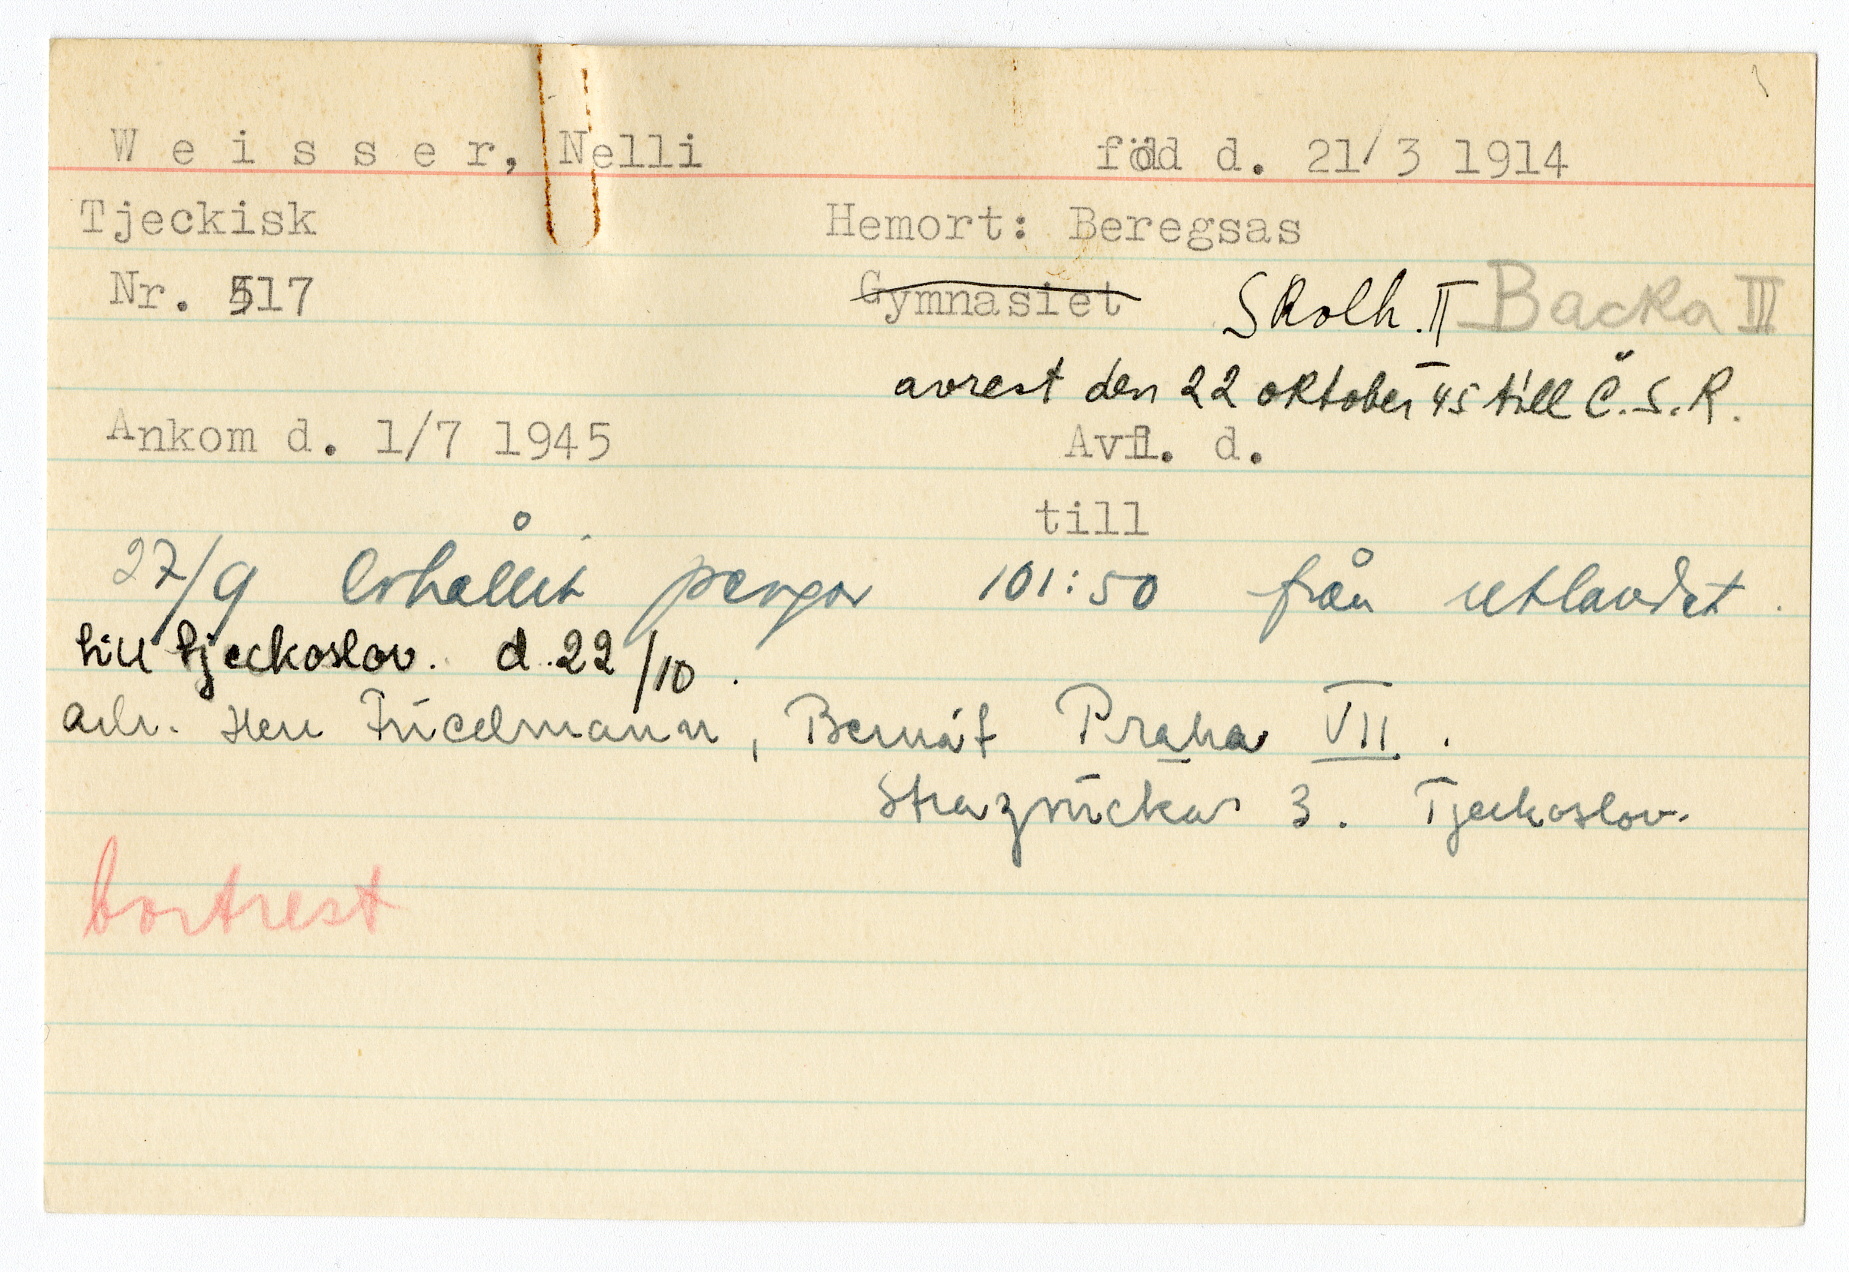 W e i s s e r, Nelli född d. 21/3 1914
Tjeckisk Hemort: Beregsas
Nr. 517 Gymnasiet Skolh. II Backa III
avrest den 22 oktober 45 till Č.S.R.
Ankom d. 1/7 1945 Avfl. d.
till
27/9 Erhållit pengar 101:50 från utlandet.
till Tjeckoslov. d. 22/10.
adr. Herr Friedmann, Bernát Praha VII.
3. Tjeckoslov.
bortrest